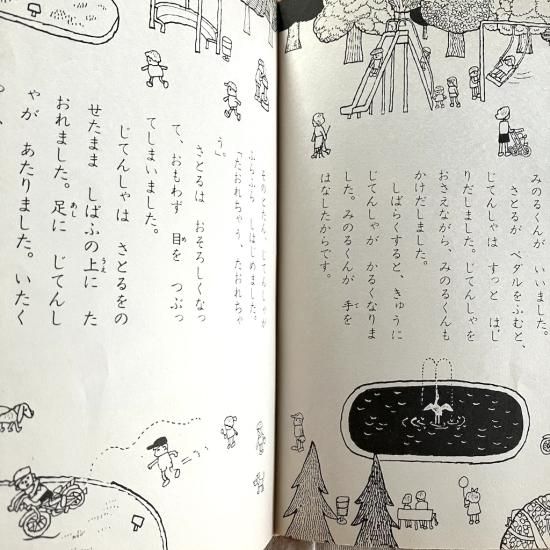 みのるくんが いいました。
さとるが ペダルをふむと、
じてんしゃは すっと はし
りだしました。じてんしゃを
おさえながら、みのるくんも
かけだしました。
しばらくすると、きゅうに
じてんしゃが かるくなりま
した。みのるくんが 手を
はなしたからです。
そのとたん、じてんしゃが
はじめました。
「たおれちゃう、たおれちゃ
う」
さとるは おそろしくなっ
て、おもわず 目を つぶっ
てしまいました。
じてんしゃは さとるをの
せたまま しばふの上に た
おれました。足に じてんし
ゃが あたりました。いたく